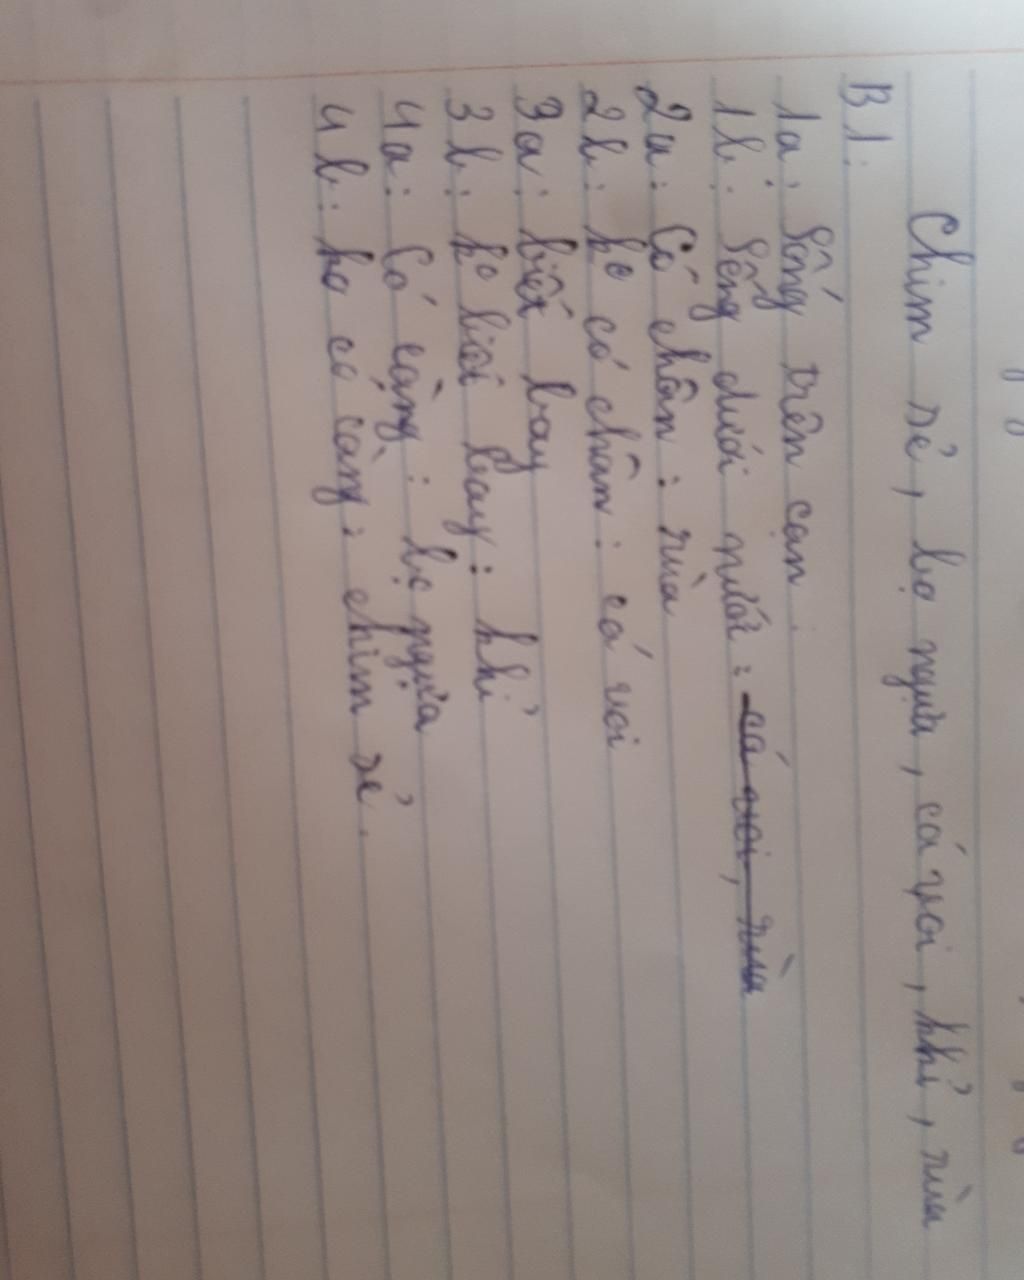 Chim sẻ, bọ ngựa, cá voi, khỉ, rùa
B1:
1a: Sống trên cạn.
1b: Sống dưới nước: cá voi, rùa
2a: Có chân: rùa
2b: ko có chân: cá voi
3a: biết bay
3b: ko biết bay: khỉ
4a: Có càng: bọ ngựa
4b: ko có càng: chim sẻ.